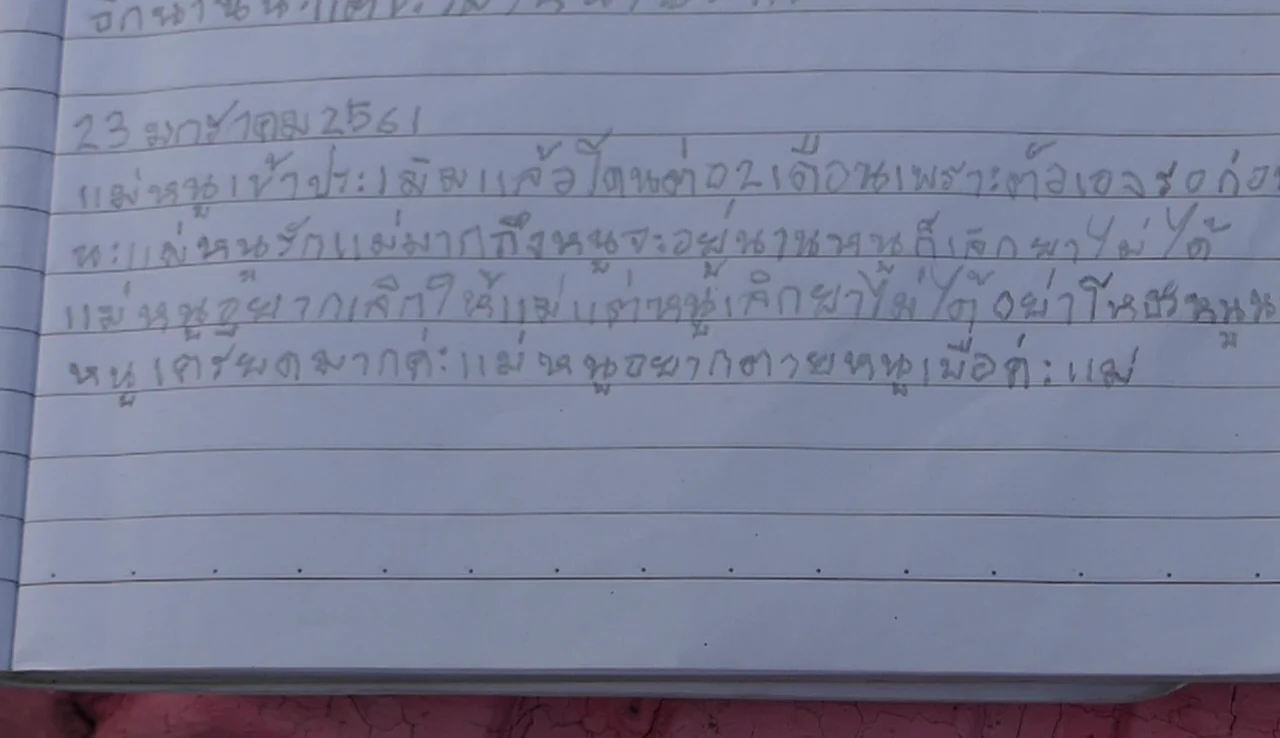 23 มกราคม 2561
แม่หนูเข้าประเมินแล้วโดนต่อ 2 เดือนเพราะตัวเอง
นะแม่หนูรักแม่มากถึงหนูจะอยู่นานหนูก็เลิกยาไม่ได้
แม่หนูอยากเลิกให้แม่แต่หนูเลิกยาไม่ได้อย่าโทษหนู
หนูเครียดมากค่ะแม่หนูอยากตายหนูเบื่อค่ะแม่